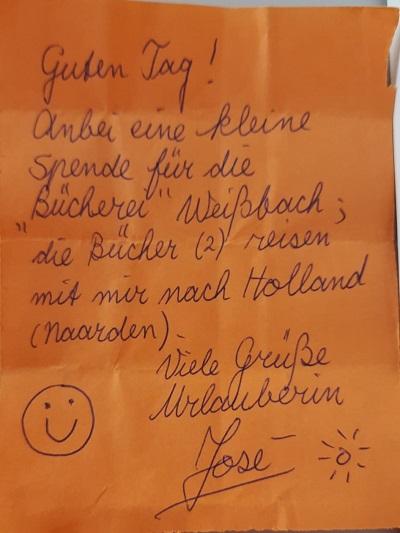 Guten Tag!
Anbei eine kleine
Spende für die
"Bücherei" Weißbach;
die Bücher (2) reisen
mit mir nach Holland
(Naarden).
Viele Grüße
Urlauberin
José